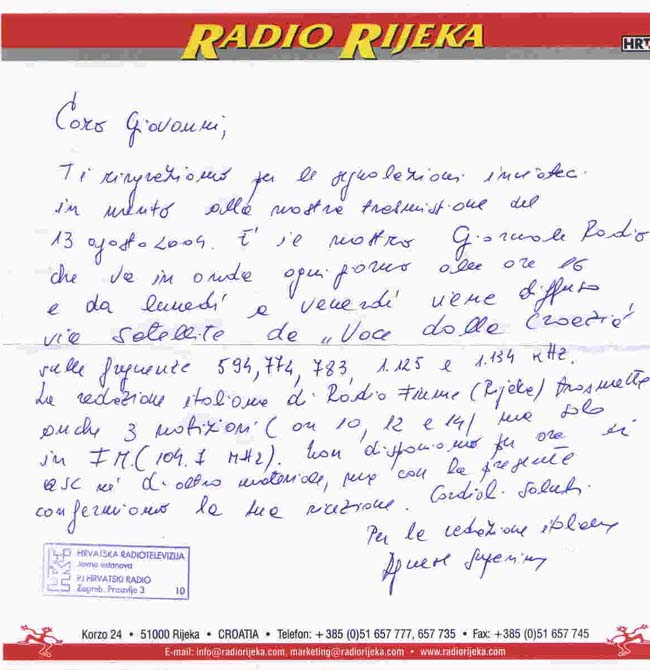 RADIO RIJEKA
HRT
Caro Giovanni,
Ti ringraziamo per le segnalazioni inviateci
in merito alla nostra trasmissione del
13 agosto 2004. E' il nostro Giornale Radio
che va in onda ogni giorno alle ore 16
e da lunedì a venerdì viene diffuso
via satellite da „Voce della Croazia"
sulle frequenze 594, 774, 783, 1.125 e 1.134 kHz.
La redazione italiana di Radio Fiume (Rijeka) trasmette
anche 3 notiziari (ore 10, 12 e 14) ma solo
in FM (104.7 MHz). Non disponiamo per ora di
QSL né di altro materiale, ma con la presente
confermiamo la tua ricezione. Cordiali saluti.
Per la redazione italiana
Agnese Superina
HRVATSKA RADIOTELEVIZIJA
Javna ustanova
PJ HRVATSKI RADIO
Zagreb, Prisavlje 3 10
Korzo 24 • 51000 Rijeka • CROATIA • Telefon: +385 (0)51 657 777, 657 735 • Fax: +385 (0)51 657 745
E-mail: info@radiorijeka.com, marketing@radiorijeka.com • www.radiorijeka.com